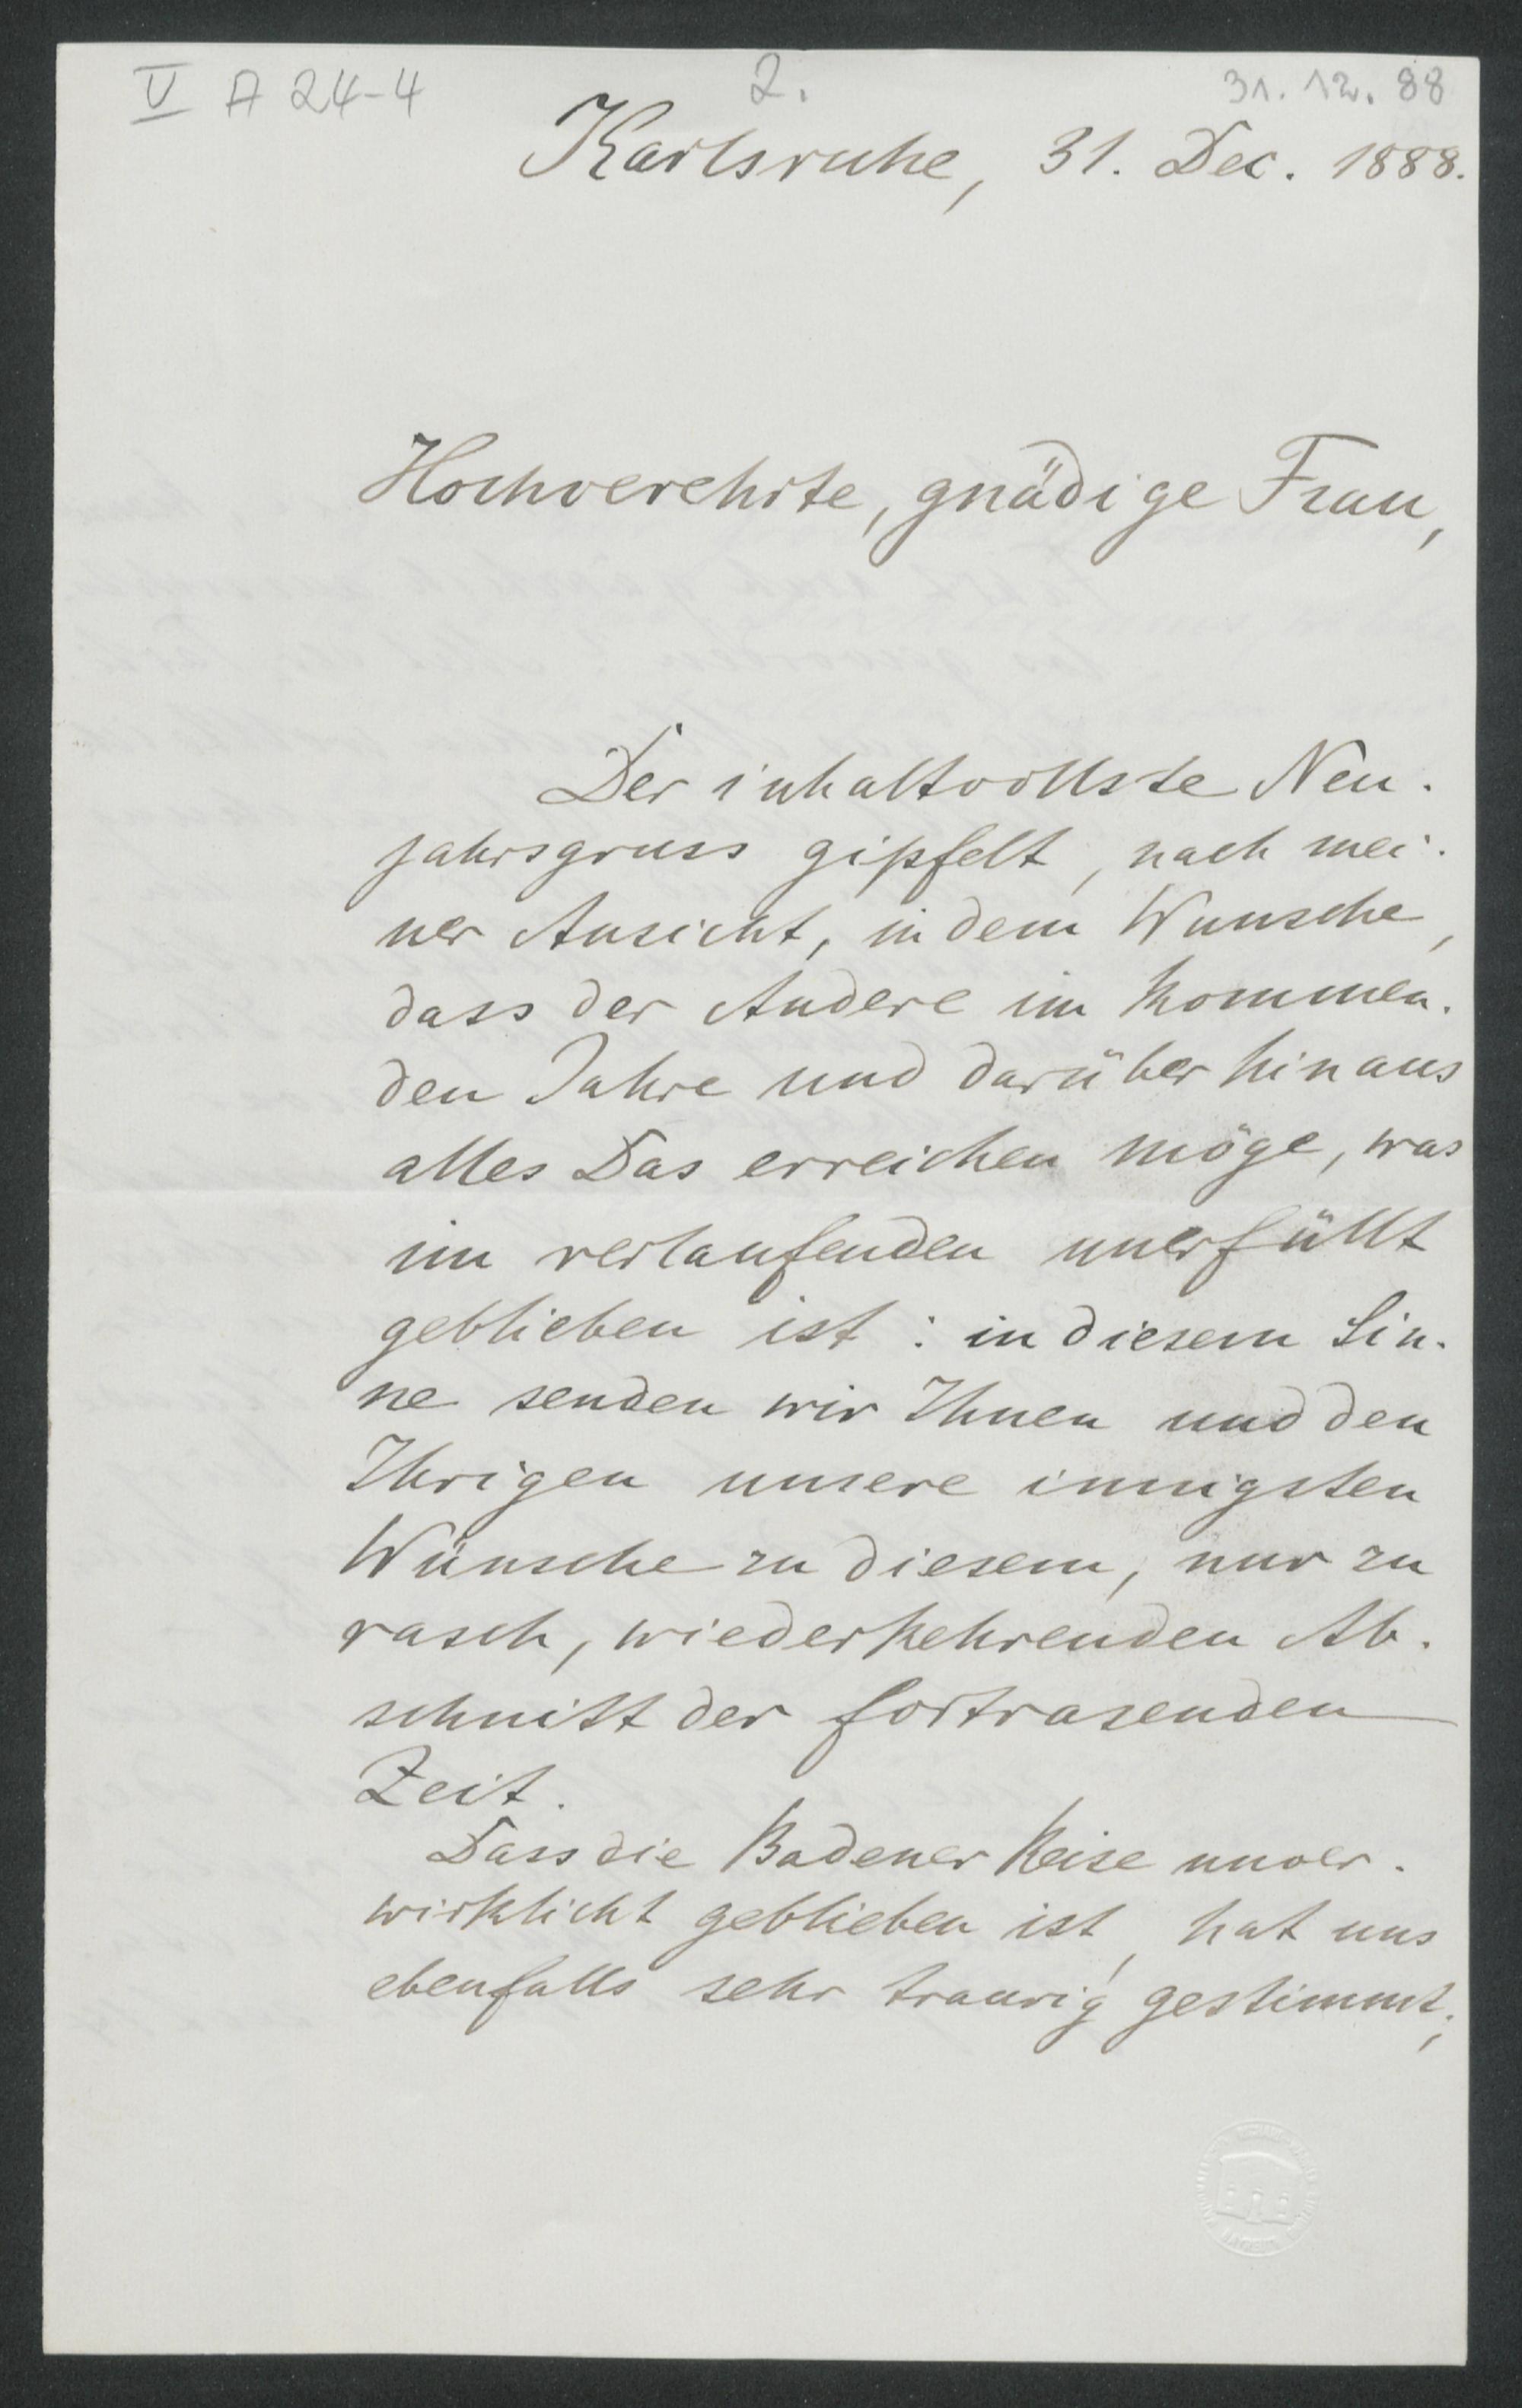 V A 24-4
2.
31. 12. 88
Karlsruhe, 31. Dec. 1888.
Hochverehrte, gnädige Frau,
Der inhaltvollste Neu-
jahrsgruss gipfelt, nach mei-
ner Ansicht, in dem Wunsche,
dass der Andere im kommen-
den Jahre und darüber hinaus
alles Das erreichen möge, was
im verlaufenden unerfüllt
geblieben ist: in diesem Sin-
ne senden wir Ihnen und den
Ihrigen unsere innigsten
Wünsche zu diesem, nur zu
rasch, wiederkehrenden Ab-
schnitt der fortrasenden
Zeit.
Dass die Badener Reise unver-
wirklicht geblieben ist, hat uns
ebenfalls sehr traurig gestimmt;